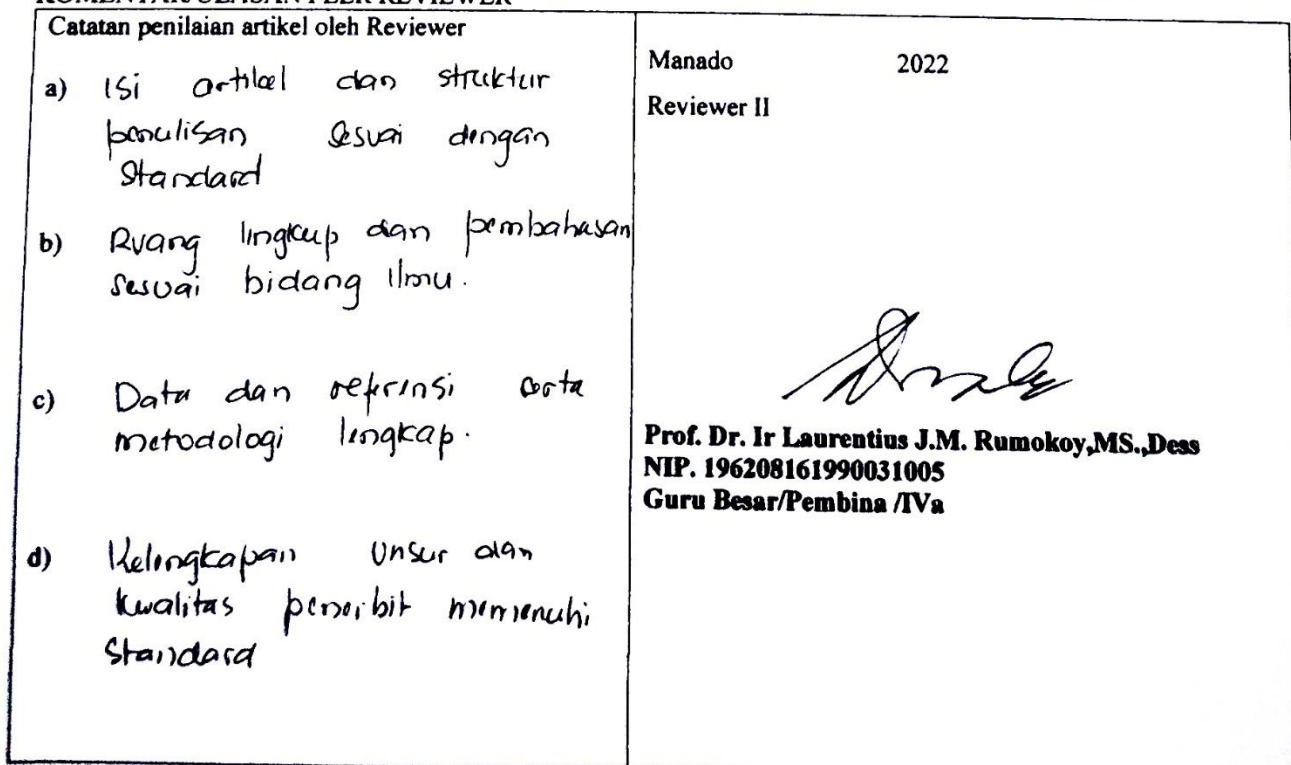 KOMENTAR/ULASAN PEER REVIEWER
Catatan penilaian artikel oleh Reviewer
a) Isi artikel dan struktur
penulisan sesuai dengan
Standard
b) Ruang lingkup dan pembahasan
sesuai bidang Ilmu.
c) Data dan referensi serta
metodologi lengkap.
d) Kelengkapan Unsur dan
kwalitas penerbit memenuhi
Standard
Manado 2022
Reviewer II
Prof. Dr. Ir Laurentius J.M. Rumokoy,MS.,Dess
NIP. 196208161990031005
Guru Besar/Pembina /IVa